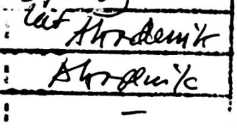 Akademik
Akademik
—